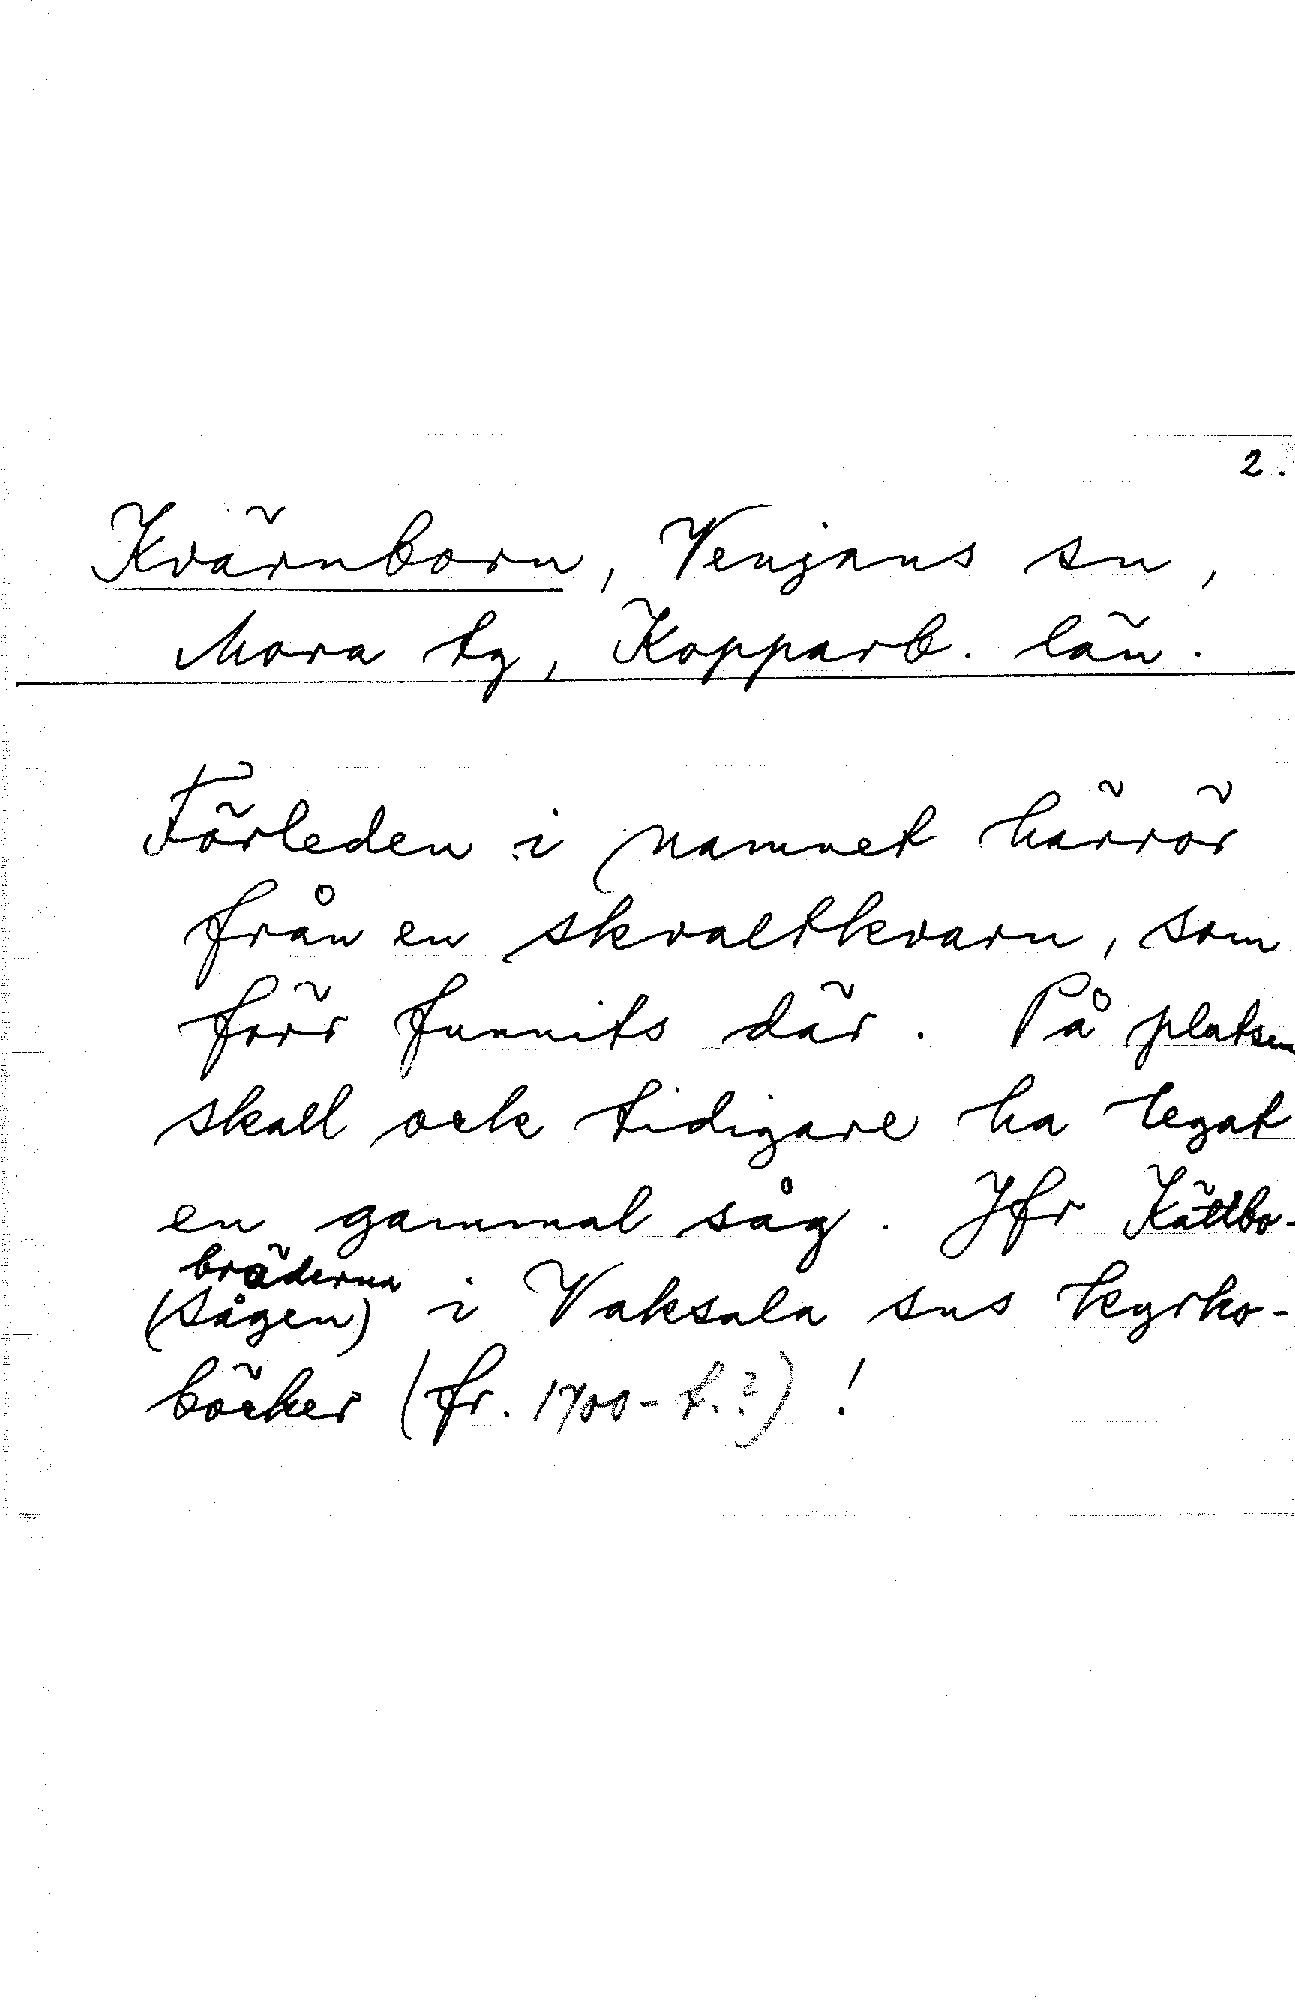 2.
Kvärnborn, Venjans sn,
Mora tg, Kopparb. län.
Förleden i namnet härrör
från en skvaltkvarn, som
förr funnits där. På platsen
skall ock tidigare ha legat
en gammal såg. Jfr Kättbo-
bräderna
(sågen) i Vaksala sns kyrko-
böcker (fr. 1700-t.?)!